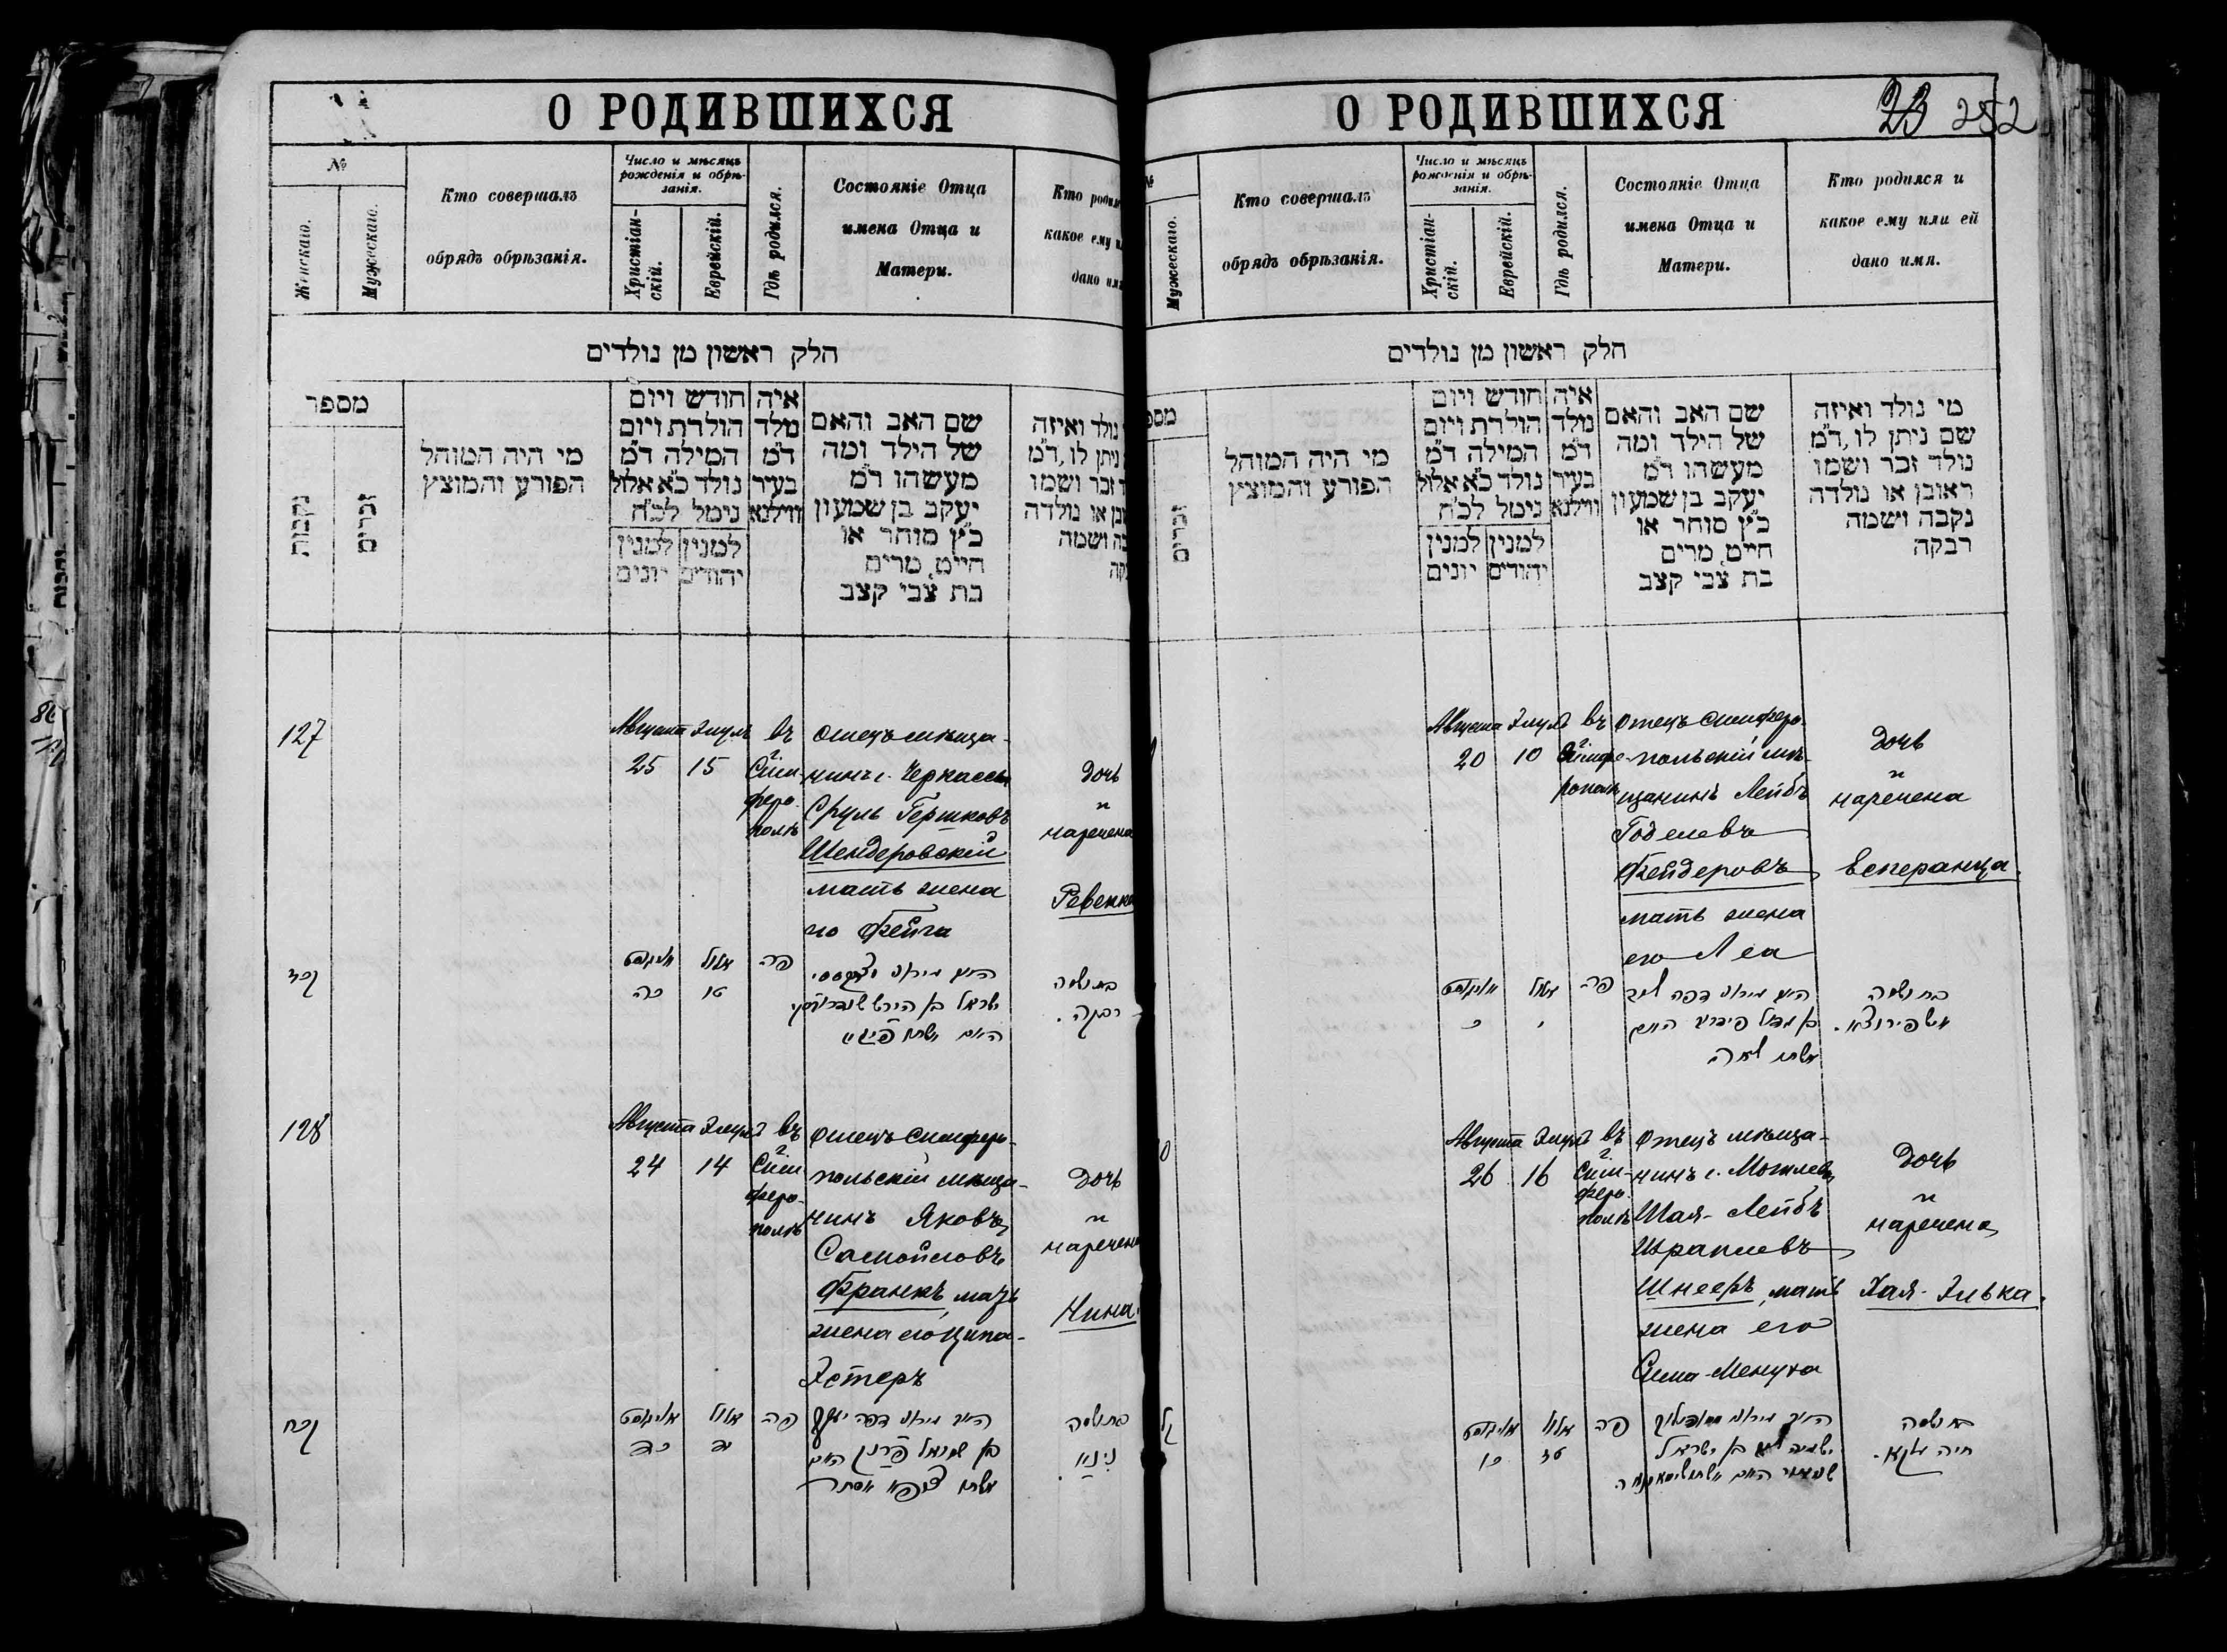 О РОДИВШИХСЯ
№
Женскаго.
Мужескаго.
Кто совершалъ
обрядъ обрѣзанія.
Число и мѣсяцъ
рожденія и обрѣ-
занія.
Христіан-
скій.
Еврейскій.
Гдѣ родился.
Состояніе Отца
имена Отца и
Матери.
Кто
какое ему
дано
חלק ראשון מן נולדים
מספר
נקבות
זכרים
מי היה המוהל
הפורע והמוצץ
חודש ויום
הולדת ויום
המילה ד"מ
נולד כ"א אלול
נימל לכ"ח
למנין
יהודים
למנין
יונים
איה
נולד
ד"מ
בעיר
ווילנא
שם האב והאם
של הילד ומה
מעשהו ד"מ
יעקב בן שמעון
כ"ץ סוחר או
חייט, מרים
בת צבי קצב
נולד ואיזה
ניתן לו, ד"מ
זכר ושמו
או נולדה
ושמה
127
Августа
25
Элулъ
15
въ
г.
Сим-
феро-
полѣ
Отецъ мѣща-
нинъ г. Черкассы
Сруль Гершковъ
Шендеровскій
мать жена
го Фейга
Дочь
и
наречена
Ревекка
קכז
אויגוסט
כה
אלול
טו
פה
ישראל בן הירש
בת ושמה
רבקה.
128
Августа
24
Элулъ
14
въ
г.
Сим-
феро-
полѣ
Отецъ симферо-
польскій мѣща-
нинъ Яковъ
Самойловъ
Франкъ, мать
жена его Ципа-
Эстеръ
Дочь
и
наречена
Нина.
קכח
אויגוסט
כד
אלול
יד
פה
בן שמואל פראנק היום
בת ושמה
נינא.
О РОДИВШИХСЯ
23 252
№
Мужескаго.
Кто совершалъ
обрядъ обрѣзанія.
Число и мѣсяцъ
рожденія и обрѣ-
занія.
Христіан-
скій.
Еврейскій.
Гдѣ родился.
Состояніе Отца
имена Отца и
Матери.
Кто родился и
какое ему или ей
дано имя.
חלק ראשון מן נולדים
זכרים
מי היה המוהל
הפורע והמוצץ
חודש ויום
הולדת ויום
המילה ד"מ
נולד כ"א אלול
נימל לכ"ח
למנין
יהודים
למנין
יונים
איה
נולד
ד"מ
בעיר
ווילנא
שם האב והאם
של הילד ומה
מעשהו ד"מ
יעקב בן שמעון
כ"ץ סוחר או
חייט, מרים
בת צבי קצב
מי נולד ואיזה
שם ניתן לו, ד"מ
נולד זכר ושמו
ראובן או נולדה
נקבה ושמה
רבקה
Августа
20
Элулъ
10
въ
г.
Симфе-
рополѣ
Отецъ симферо-
польскій мѣ-
щанинъ Лейбъ
Годелевъ
Фейдеровъ
мать жена
его Леа
Дочь
и
наречена
Есперанца.
אויגוסט
כ
אלול
י
פה
אשתו לאה
בת ושמה
Августа
26
Элулъ
16
въ
г.
Сим-
феро-
полѣ
Отецъ мѣща-
нинъ г. Могилева
Шая-Лейбъ
Шнееръ, мать
жена его
Сима-Менуха
Дочь
и
наречена
Хая-Элька.
אויגוסט
כו
אלול
טז
פה
בן ישראל
בת ושמה
חיה עלקא.